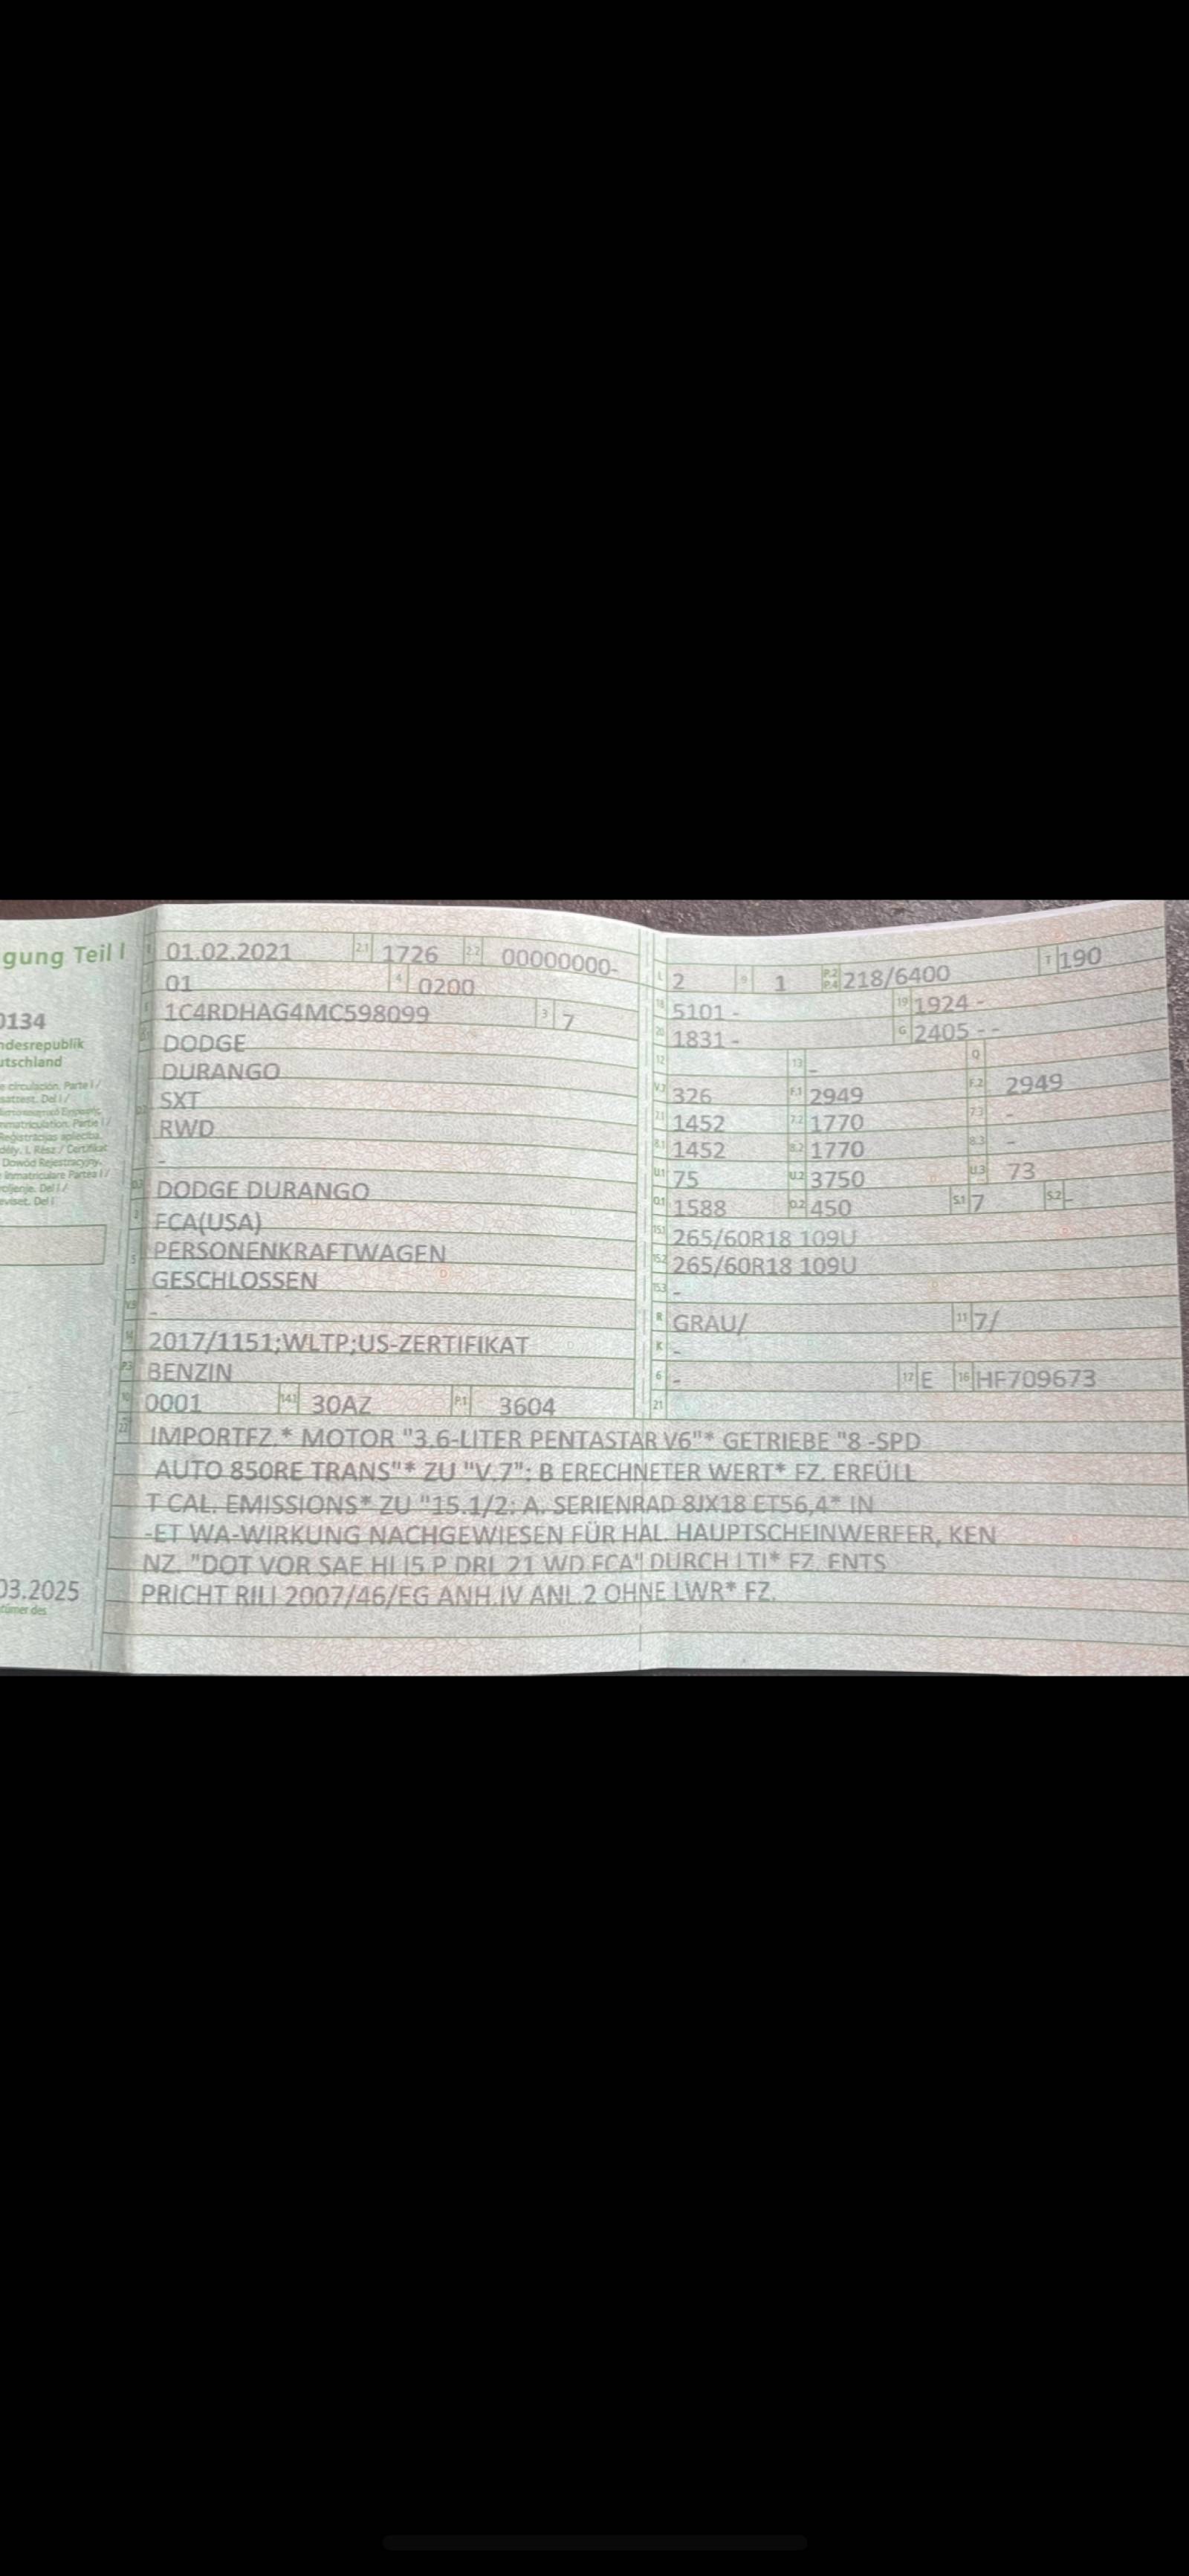 gung Teil I
0134
ndesrepublik
utschland
e circulación. Parte I /
03.2025
01.02.2021 2.1 1726 2.2 00000000-
01 4 0200
1C4RDHAG4MC598099 3 7
DODGE
DURANGO
SXT
RWD
-
DODGE DURANGO
FCA(USA)
5 PERSONENKRAFTWAGEN
GESCHLOSSEN
V.9 -
14 2017/1151;WLTP;US-ZERTIFIKAT
P.3 BENZIN
10 0001 14.1 30AZ P.1 3604
L 2 9 1 P.2 P.4 218/6400 T 190
18 5101 - 19 1924 -
20 1831 - G 2405 - -
12 13 - Q
V.7 326 F.1 2949 F.2 2949
7.1 1452 7.2 1770 7.3 -
8.1 1452 8.2 1770 8.3 -
U.1 75 U.2 3750 U.3 73
O.1 1588 O.2 450 S.1 7 S.2 -
15.1 265/60R18 109U
15.2 265/60R18 109U
15.3 -
R GRAU/ 11 7/
K -
6 - 17 E 16 HF709673
21
22 IMPORTFZ.* MOTOR "3.6-LITER PENTASTAR V6"* GETRIEBE "8 -SPD
AUTO 850RE TRANS"* ZU "V.7": B ERECHNETER WERT* FZ. ERFÜLL
T CAL. EMISSIONS* ZU "15.1/2: A. SERIENRAD 8JX18 ET56,4* IN
-ET WA-WIRKUNG NACHGEWIESEN FÜR HAL. HAUPTSCHEINWERFER, KEN
NZ. "DOT VOR SAE HL I5 P DRL 21 WD FCA" DURCH LTI* FZ. ENTS
PRICHT RILI 2007/46/EG ANH.IV ANL.2 OHNE LWR* FZ.